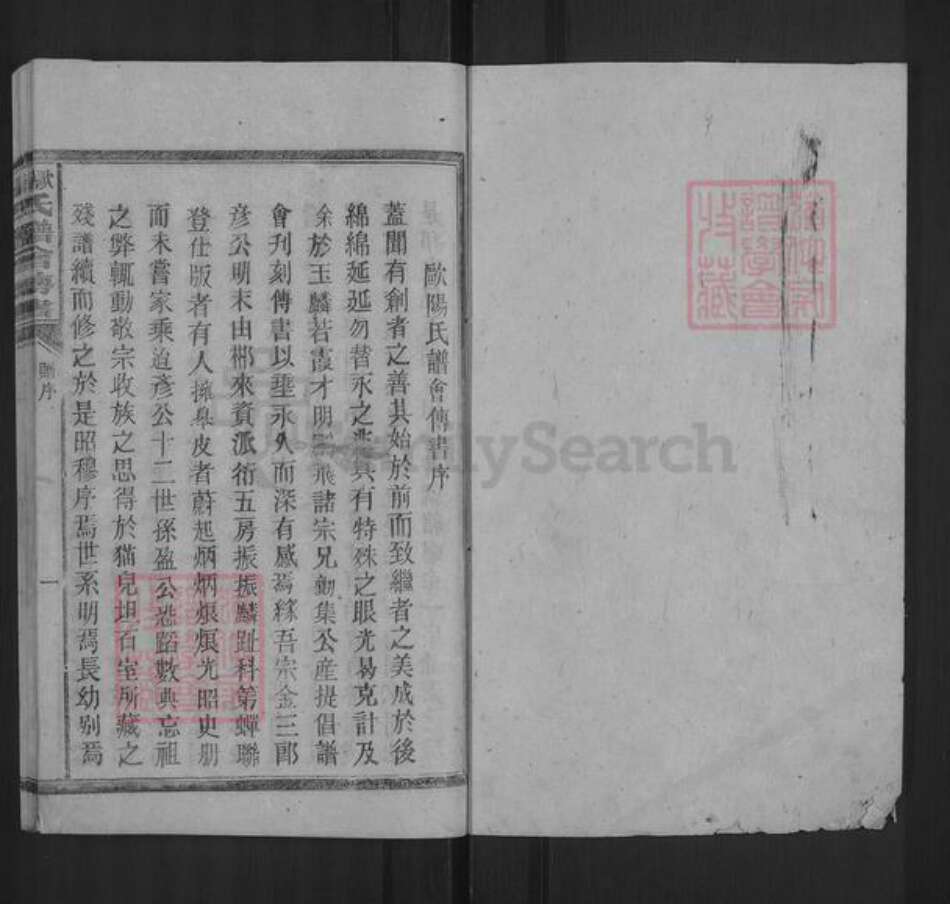 歐陽氏譜會傳書序
蓋聞有創者之善其始於前而致繼者之美成於後
綿綿延延勿替永之非具有特殊之眼光易克計及
余於玉麟若霞才明飛諸宗兄勷集公產提倡譜
會刊刻傳書以垂永久而深有感焉緣吾宗金三郎
彥公明末由梆來資派衍五房振振麟趾科第蟬聯
登仕版者有人擁皋皮者蔚起炳炳烺烺光昭史册
而未嘗家乘迨彥公十二世孫盈公恐蹈數典忘祖
之弊輒動敬宗收族之思得於猫兒坦百室所藏之
殘譜續而修之於是昭穆序焉世系明焉長幼别焉
歐陽氏譜會傳書
序
一
譜學會
收藏
FamilySearch